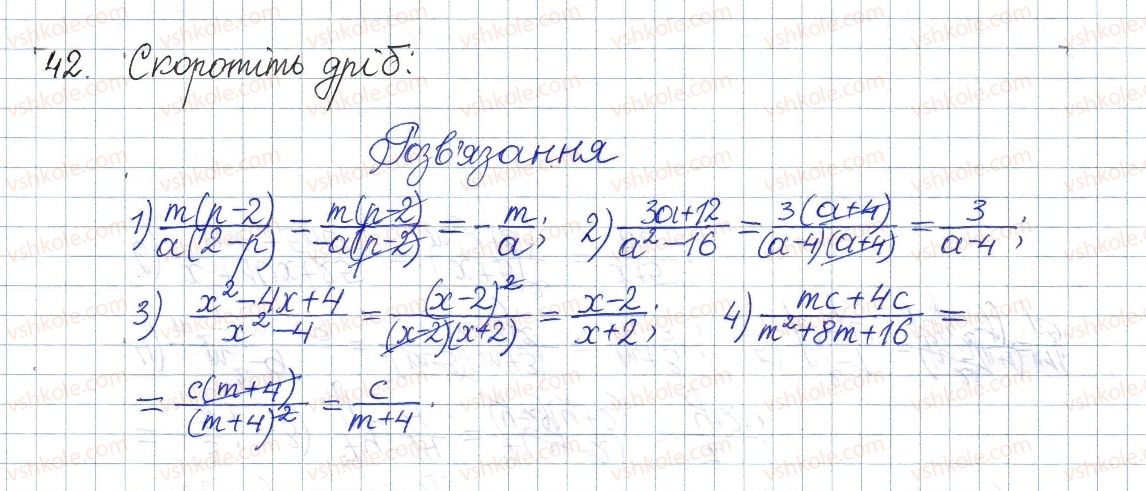 42. Скоротіть дріб:
Розв'язання
1) m(p-2)/a(2-p) = m(p-2)/-a(p-2) = -m/a; 2) 3a+12/a²-16 = 3(a+4)/(a-4)(a+4) = 3/a-4;
3) x²-4x+4/x²-4 = (x-2)²/(x-2)(x+2) = x-2/x+2; 4) mc+4c/m²+8m+16 =
= c(m+4)/(m+4)² = c/m+4.